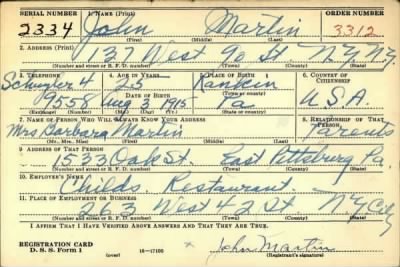 SERIAL NUMBER 1. NAME (Print) ORDER NUMBER
3334 John Martin 3312
(First) (Middle) (Last)
2. ADDRESS (Print)
137 West 90 St. N.Y. N.Y.
(Number and street or R. F. D. number) (Town) (County) (State)
3. TELEPHONE 4. AGE IN YEARS 5. PLACE OF BIRTH 6. COUNTRY OF CITIZENSHIP
Schuyler 4 Rankin
DATE OF BIRTH
9558 Aug 3 1915 Pa. U.S.A.
(Exchange) (Number) (Mo.) (Day) (Yr.) (State or country)
7. NAME OF PERSON WHO WILL ALWAYS KNOW YOUR ADDRESS 8. RELATIONSHIP OF THAT PERSON
Mrs Barbara Martin Parents
(Mr., Mrs., Miss) (First) (Middle) (Last)
9. ADDRESS OF THAT PERSON
1533 Oak St. East Pittsburg Pa.
(Number and street or R. F. D. number) (Town) (County) (State)
10. EMPLOYER'S NAME
Childs. Restaurant.
11. PLACE OF EMPLOYMENT OR BUSINESS
263 West 42 St N.Y. City
(Number and street or R. F. D. number) (Town) (County) (State)
I AFFIRM THAT I HAVE VERIFIED ABOVE ANSWERS AND THAT THEY ARE TRUE.
REGISTRATION CARD
D. S. S. Form 1 (over) 16—17105 John Martin
(Registrant's signature)